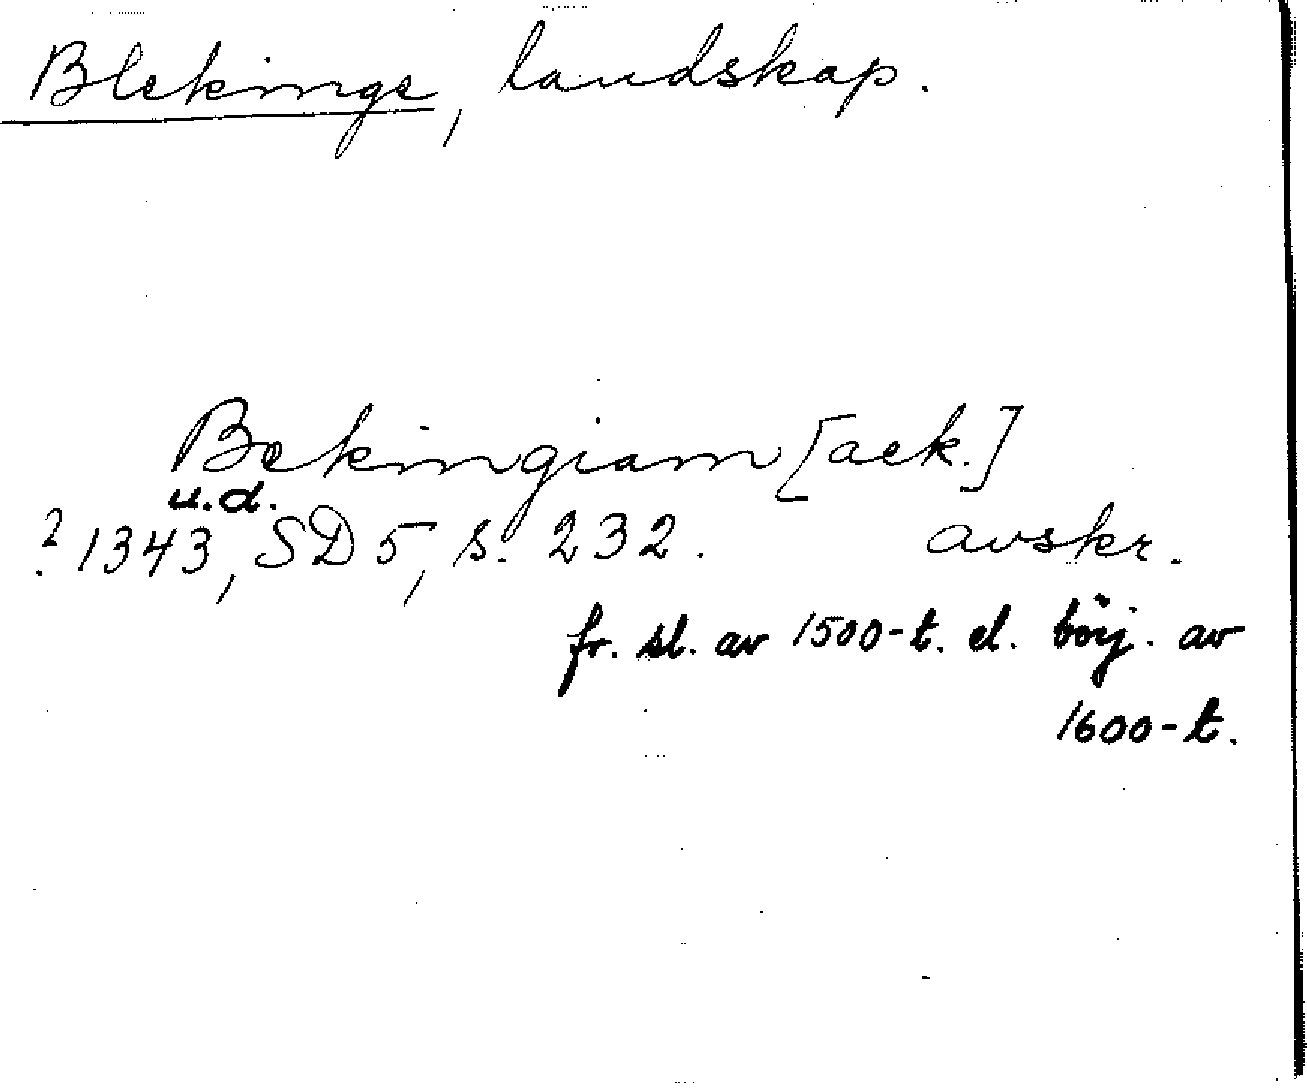 Blekinge, landskap.
Bekingiam [ack.]
u.d.
? 1343, SD 5, s. 232. avskr.
fr. sl. av 1500-t. el. börj. av
1600-t.